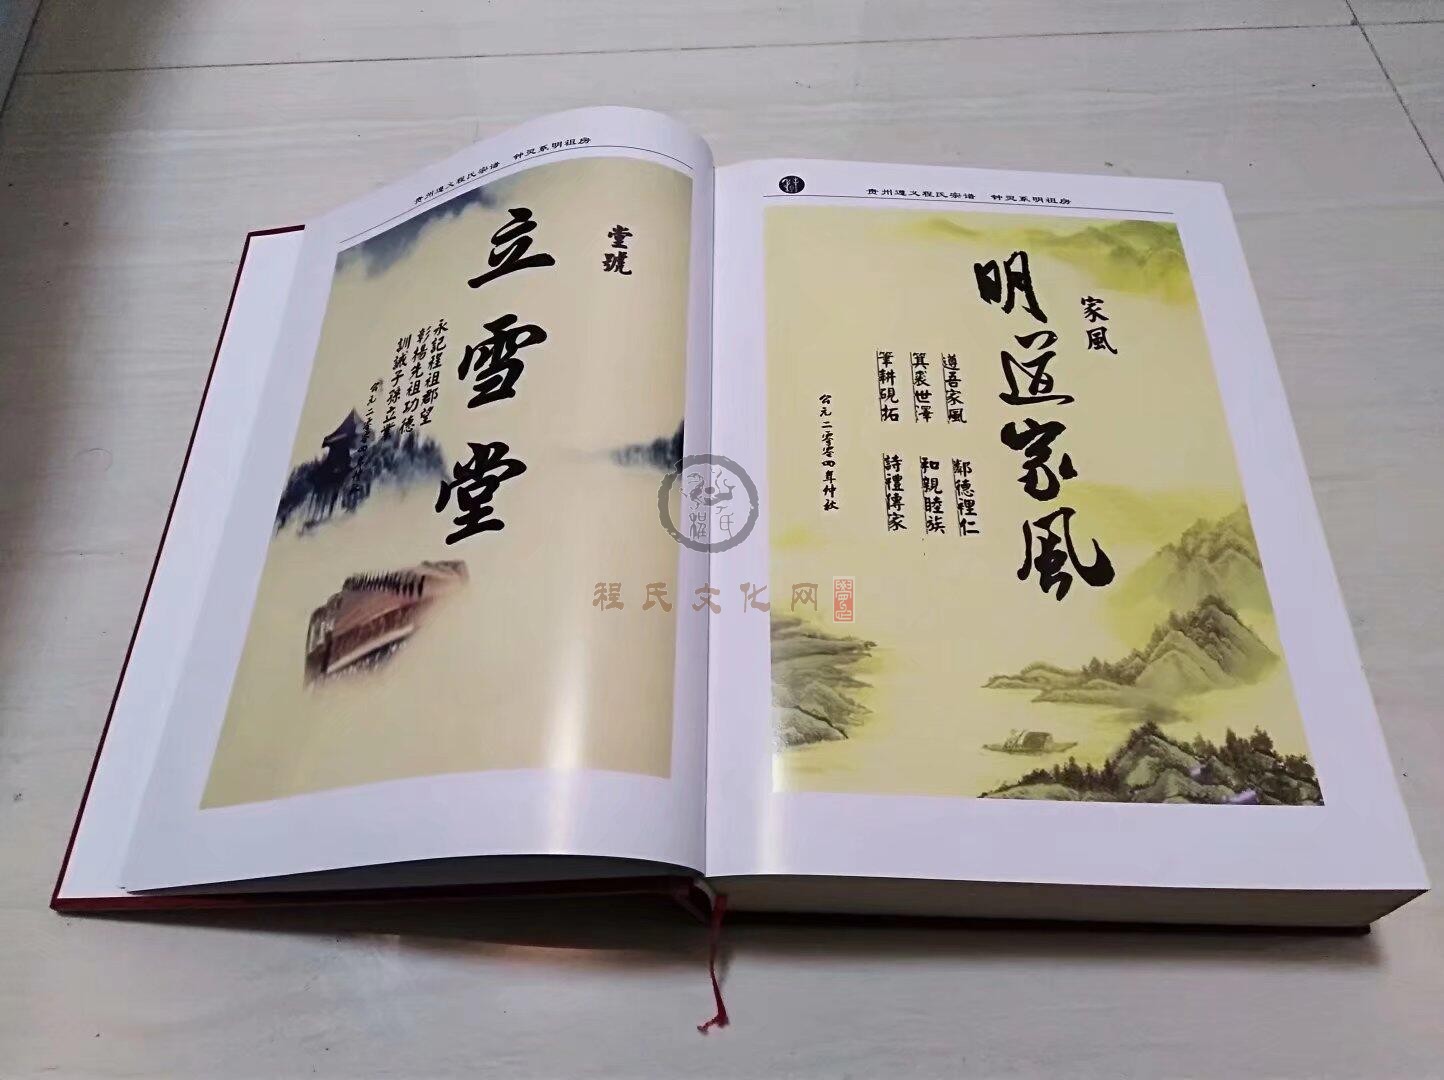 贵州遵义程氏宗谱 钟灵系明祖房
堂號
立雪堂
永記程祖郡望
彰揚先祖功德
訓誡子孫立業
公元二零零四年仲秋
贵州遵义程氏宗谱 钟灵系明祖房
家風
明道家風
遵吾家風 鄰德裡仁
箕裘世澤 和親睦族
筆耕硯拓 詩禮傳家
公元二零零四年仲秋
程氏文化网